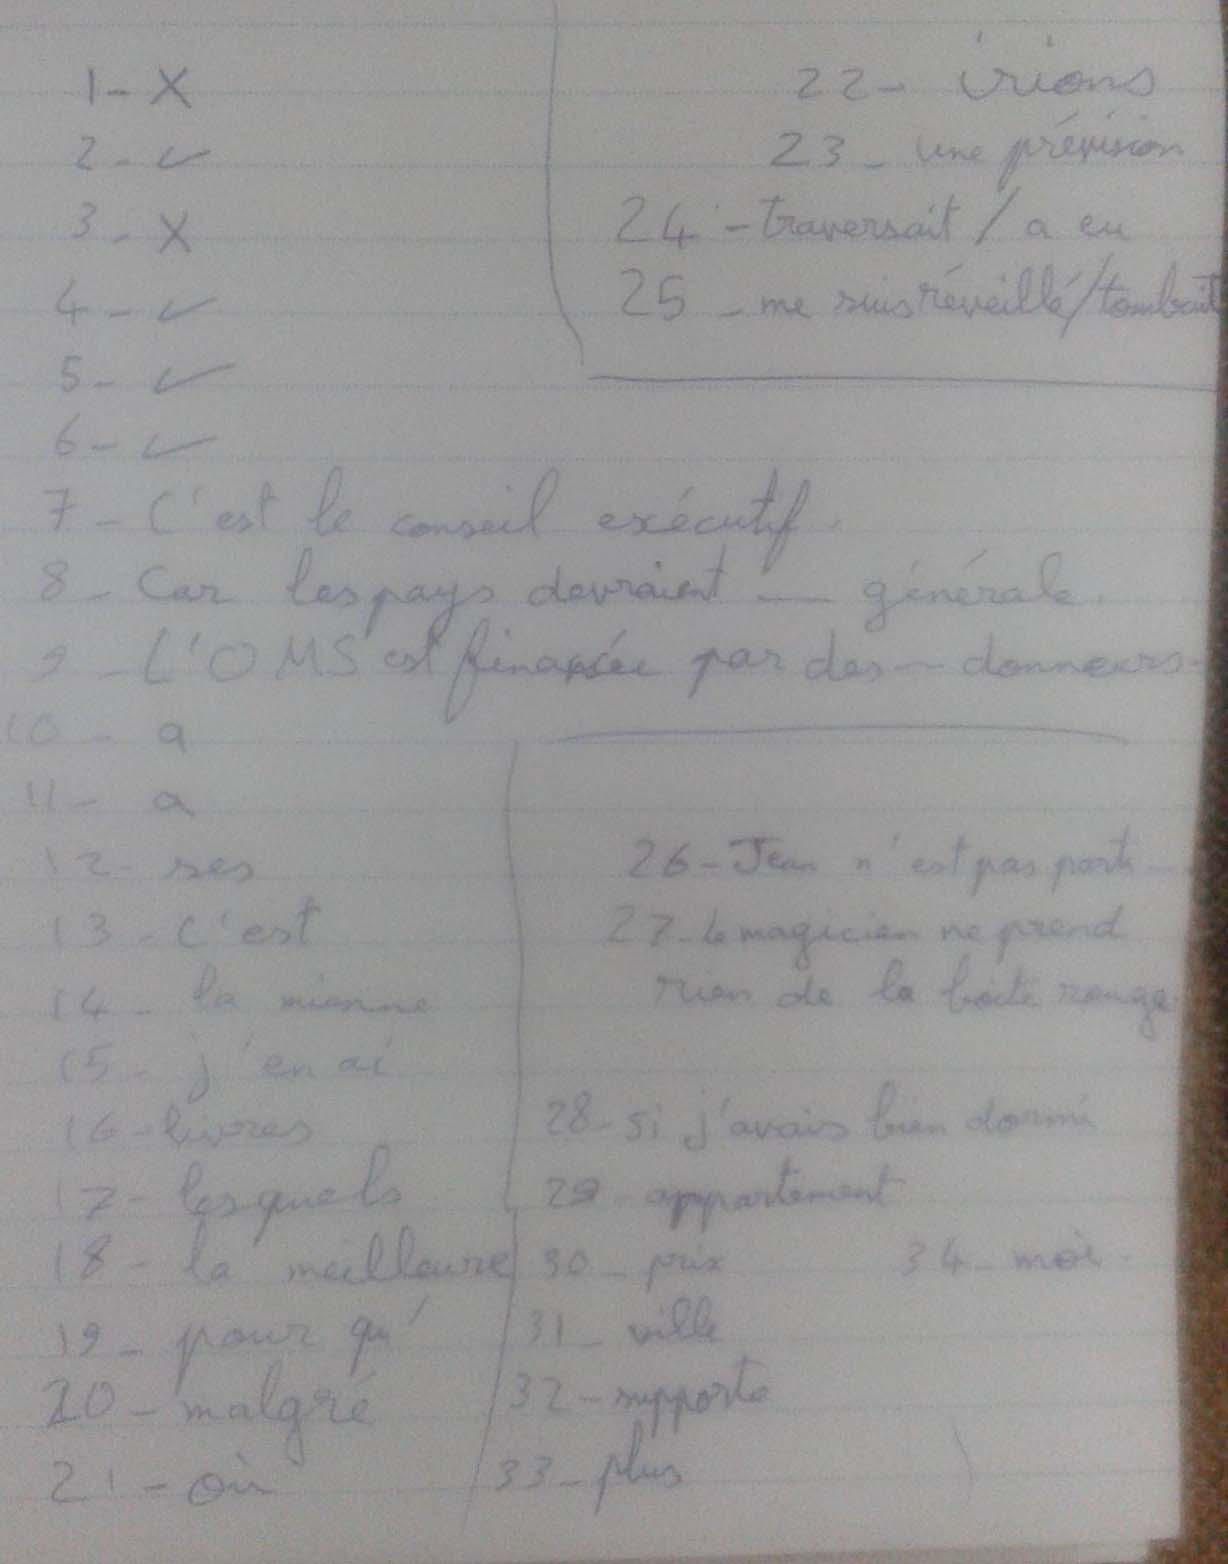 1- X
2- ✓
3- X
4- ✓
5- ✓
6- ✓
7- C'est le conseil exécutif.
8- Car les pays devraient — générale.
9- L'OMS est financée par des — donneurs.
10- a
11- a
12- ses
13- C'est
14- la mienne
15- j'en ai
16- livres
17- lesquels
18- la meilleure
19- pour qu'
20- malgré
21- où
22- irions
23- une prévision
24- traversait / a eu
25- me suis réveillé/tombait
26- Jean n'est pas parti —
27- Le magicien ne prend
rien de la boite rouge.
28- si j'avais bien dormi
29- appartement
30- prix
31- ville
32- supporte
33- plus
34- moi.